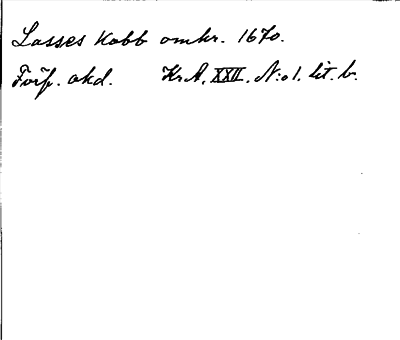 Lasses Kobb omkr. 1670.
Förf. okd. Kr.A. XXII. N:o 1. lit. b.